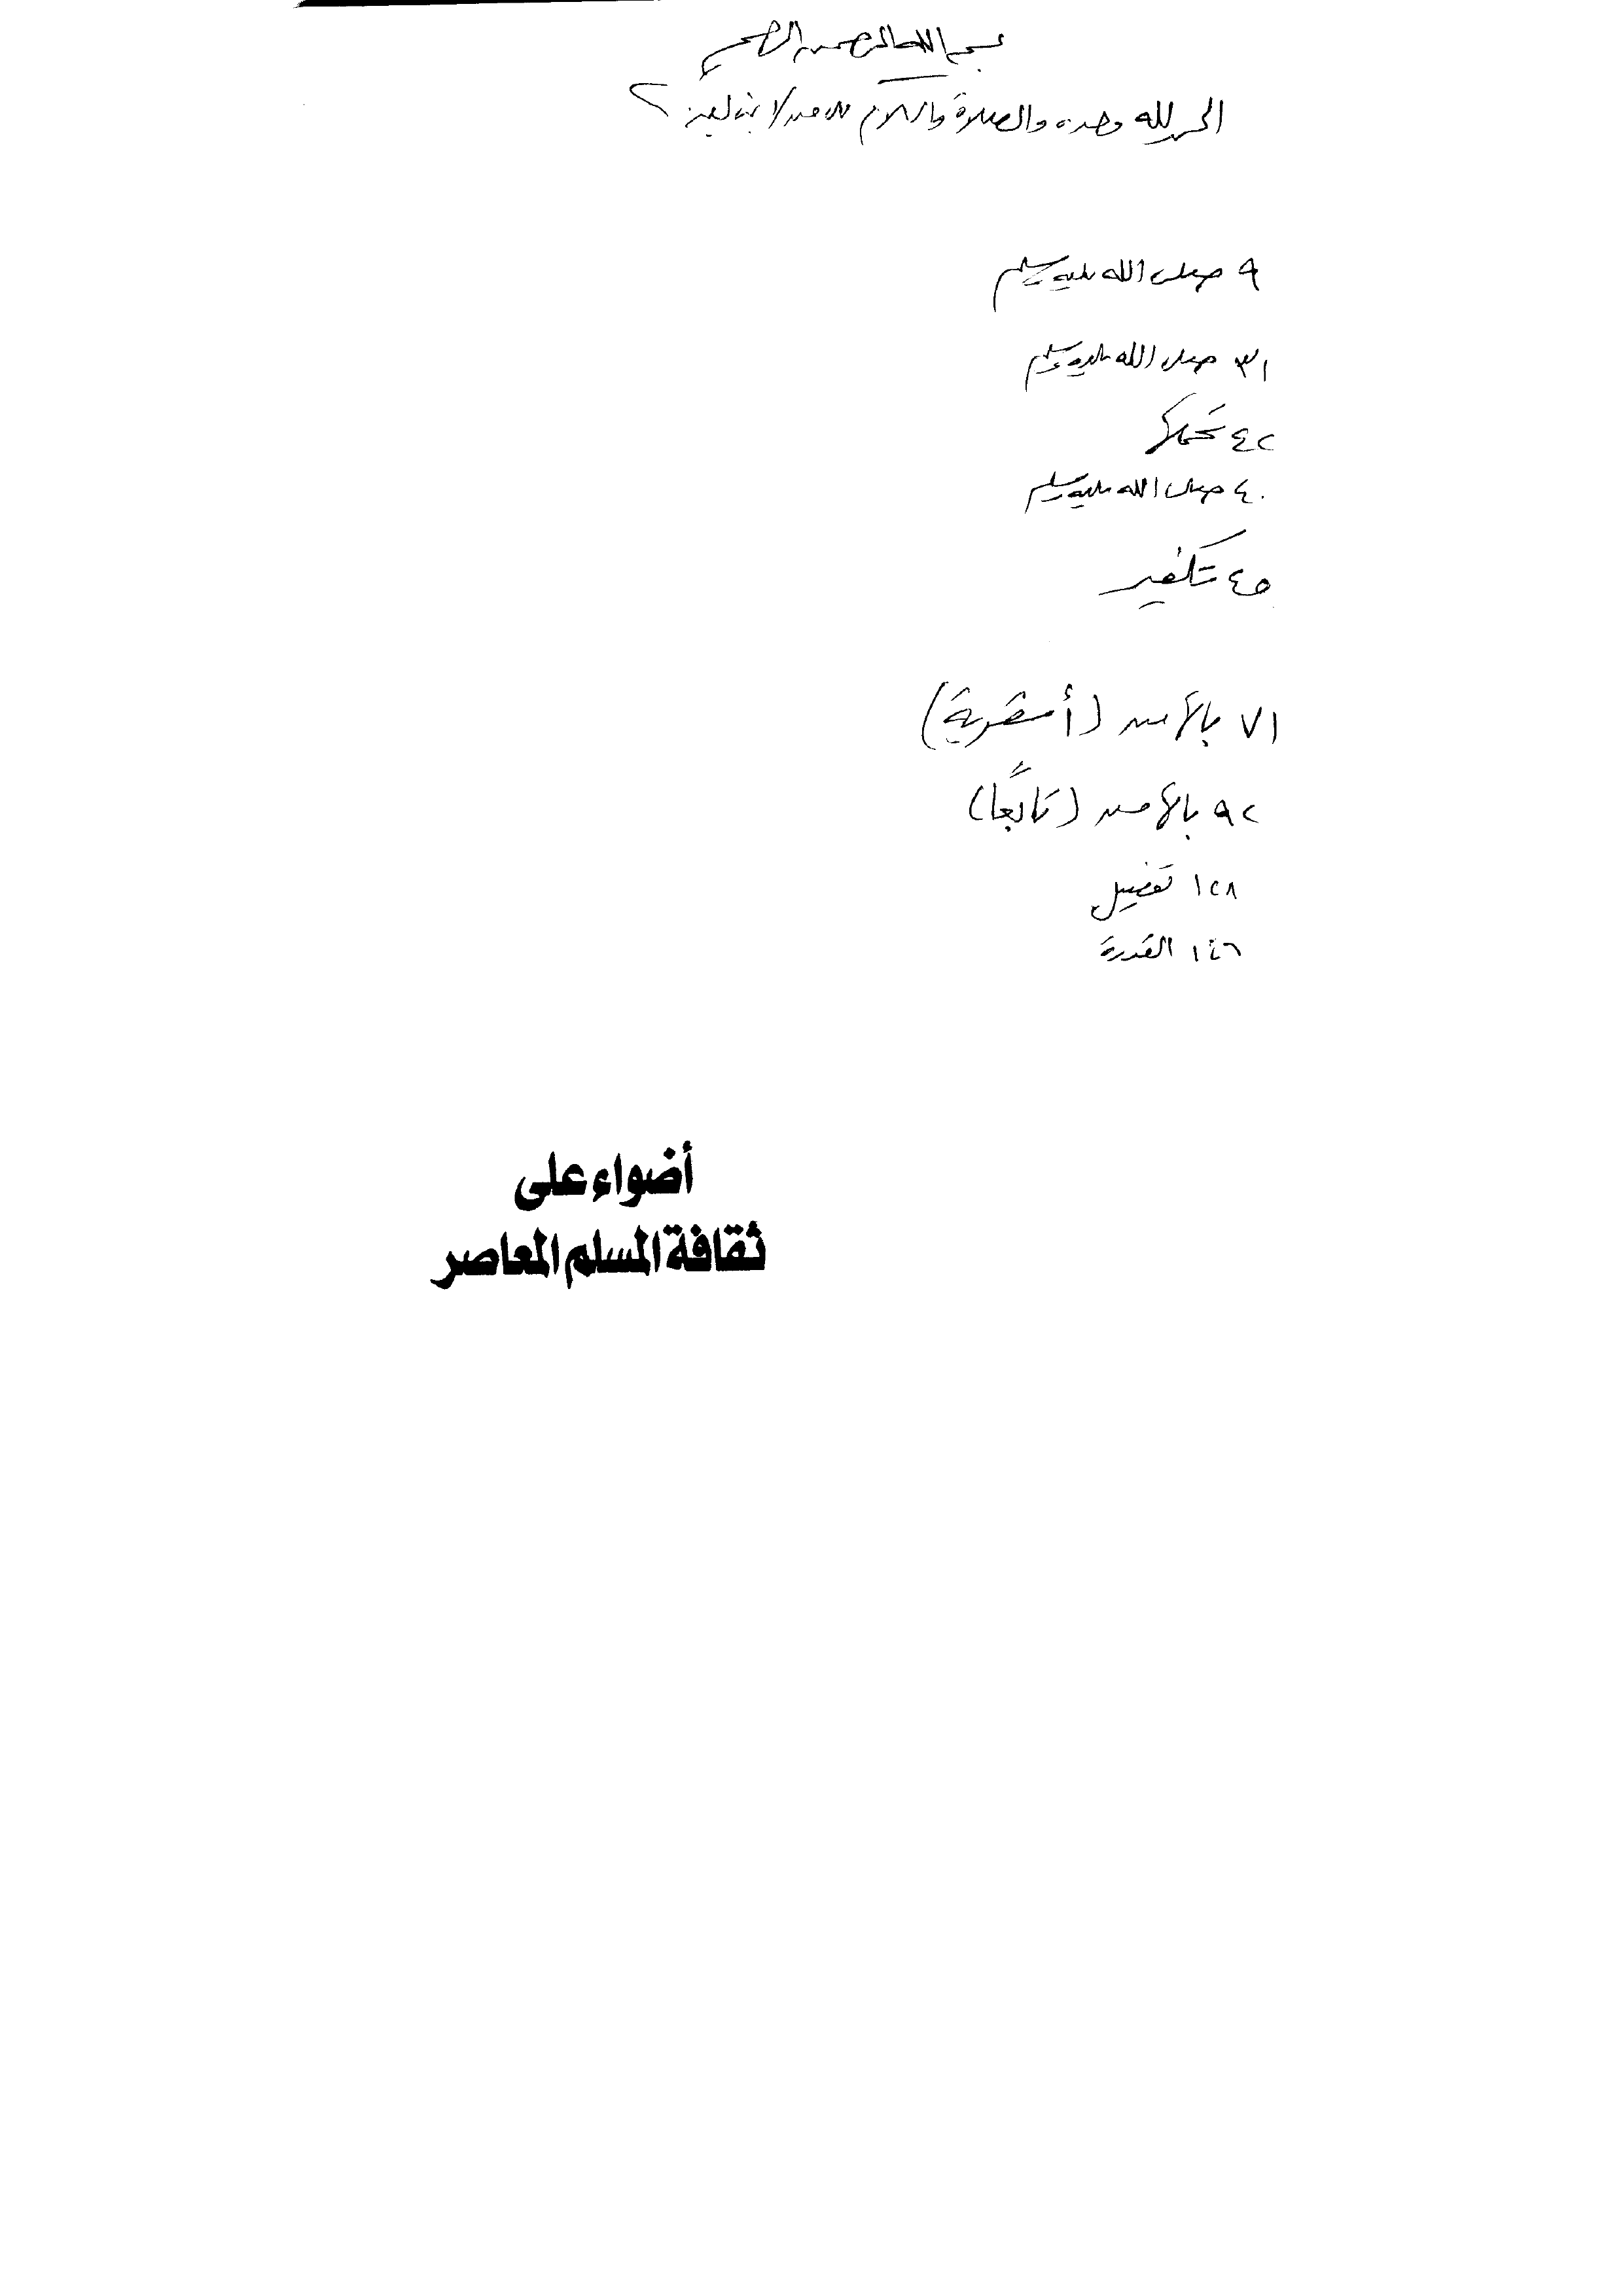 بسم الله الرحمن الرحيم
الحمد لله وحده والصلاة والسلام على من لا نبي بعده
٩ صلى الله عليه وسلم
٣١ صلى الله عليه وسلم
٤٢
٤٠ صلى الله عليه وسلم
٤٥ تكفير
٧١ بالأمس (أسقرية)
٩٢ بالأمس (تابعًا)
١٢٨ تفضيل
١٤٦ القدرة
أضواء على
ثقافة المسلم المعاصر